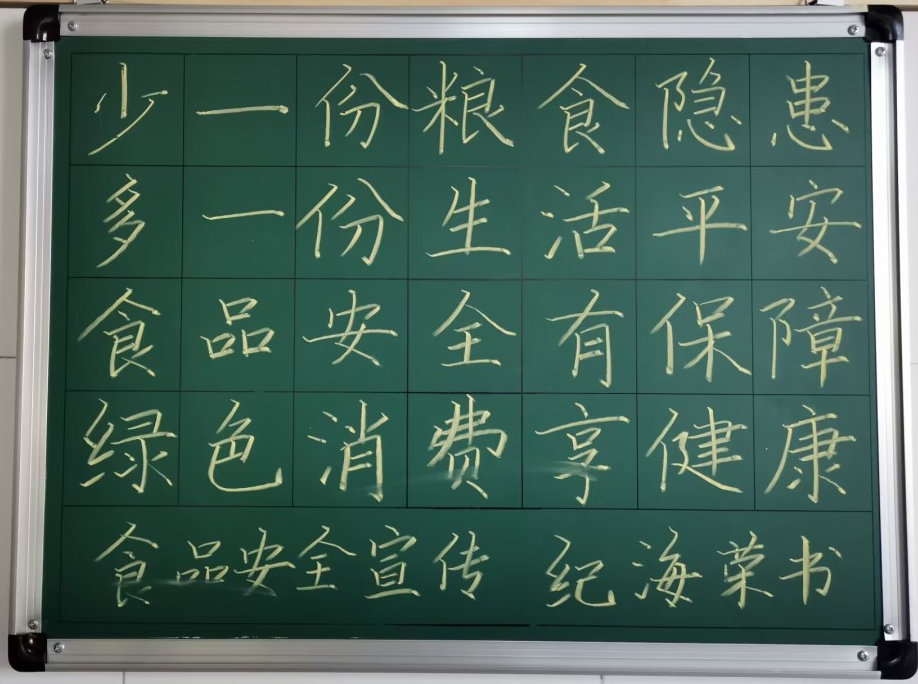 少一份粮食隐患
多一份生活平安
食品安全有保障
绿色消费享健康
食品安全宣传 纪海荣书